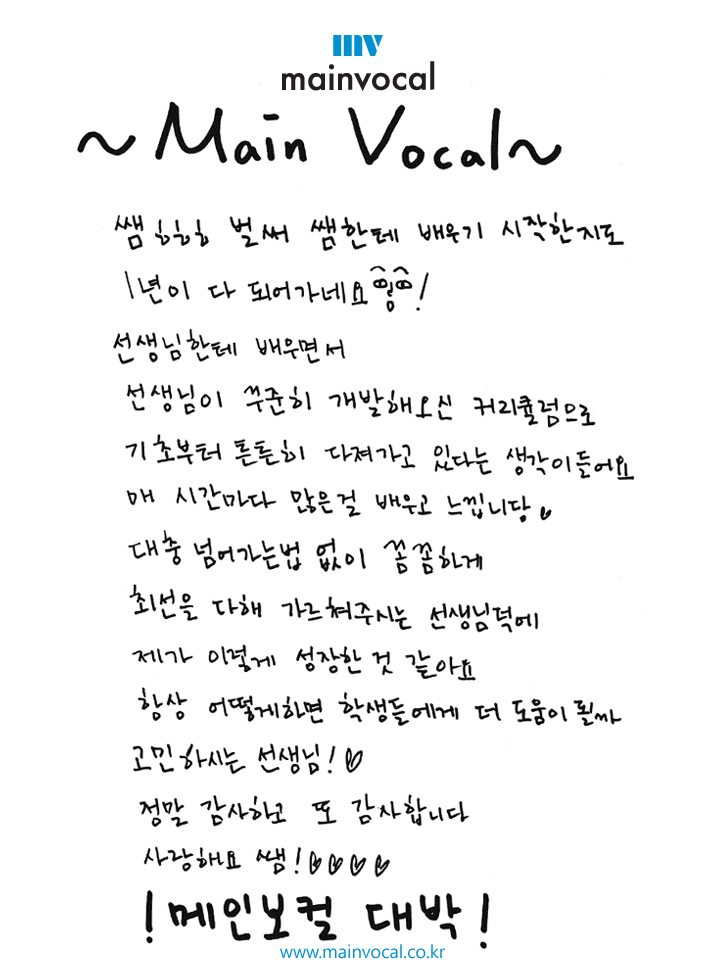 mv
mainvocal
~Main Vocal~
쌤 히히히 벌써 쌤한테 배우기 시작한지도
1년이 다 되어가네요 힝!
선생님한테 배우면서
선생님이 꾸준히 개발해오신 커리큘럼으로
기초부터 튼튼히 다져가고 있다는 생각이들어요
매 시간마다 많은걸 배우고 느낍니당
대충 넘어가는법 없이 꼼꼼하게
최선을 다해 가르쳐주시는 선생님덕에
제가 이렇게 성장한 것 같아요
항상 어떻게하면 학생들에게 더 도움이 될까
고민하시는 선생님!♡
정말 감사하고 또 감사합니다
사랑해요 쌤!♡♡♡♡
!메인보컬 대박!
www.mainvocal.co.kr